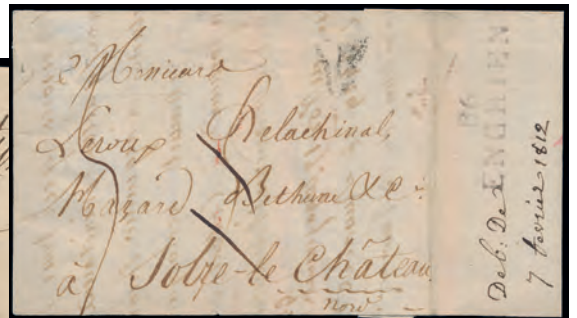 Monsieur
Leroux Delachinal,
Hazard Bethune & C
à Solre-le Château
Nord
86
ENGHIEN
Deb: De
7 fevrier 1812